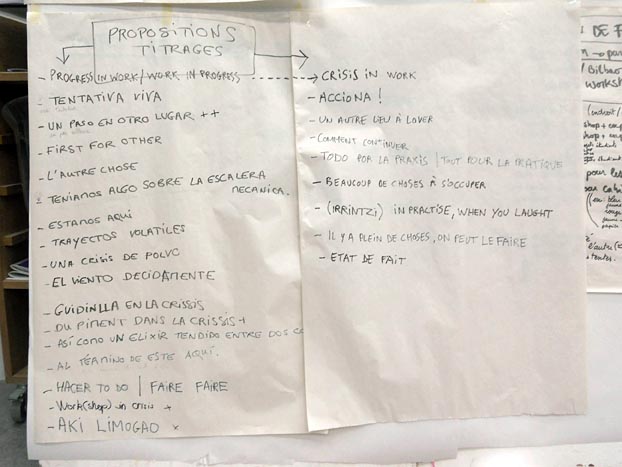 PROPOSITIONS
TITRAGES
- PROGRESS IN WORK / WORK IN PROGRESS
- TENTATIVA VIVA
- UN PASO EN OTRO LUGAR ++
- FIRST FOR OTHER
- L'AUTRE CHOSE
- TENIAMOS ALGO SOBRE LA ESCALERA
MECANICA.
- ESTAMOS AQUI
- TRAYECTOS VOLATILES
- UNA CRISIS DE POLVO
- EL VIENTO DECIDAMENTE
- GUIDINLLA EN LA CRISSIS
- DU PIMENT DANS LA CRISSIS +
- ASÍ COMO UN ELIXIR TENDIDO ENTRE DOS
- AL TÉRMINO DE ESTE AQUÍ.
- HACER TO DO | FAIRE FAIRE
- Work(shop) in crisis +
- AKI LIMOGAO x
- CRISIS IN WORK
- ACCIONA !
- UN AUTRE LIEU À LOVER
- COMMENT CONTINUER
- TODO POR LA PRAXIS | TOUT POUR LA PRATIQUE
- BEAUCOUP DE CHOSES À S'OCCUPER
- (IRRINTZI) IN PRACTISE, WHEN YOU LAUGHT
- IL Y A PLEIN DE CHOSES, ON PEUT LE FAIRE
- ETAT DE FAIT
DE
Bilbao
shop +
shop +
pour les